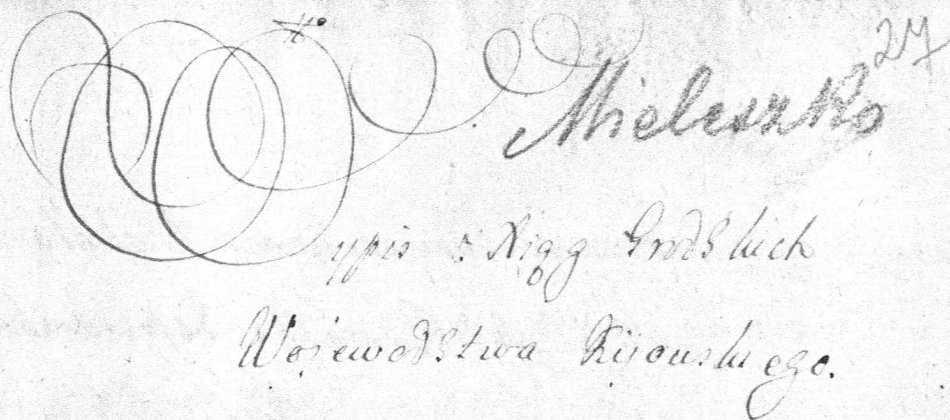 27
Mieleszko
Wypis z Xiąg Grodskich
Wojewodstwa Kijowskiego.